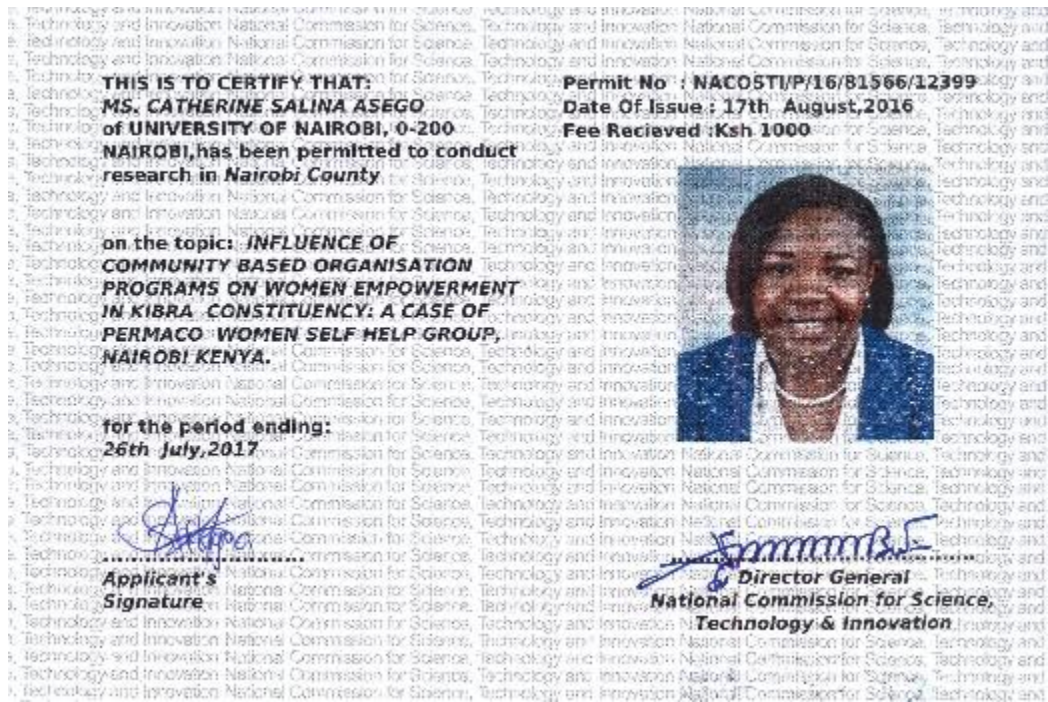 THIS IS TO CERTIFY THAT:
MS. CATHERINE SALINA ASEGO
of UNIVERSITY OF NAIROBI, 0-200
NAIROBI,has been permitted to conduct
research in Nairobi County
on the topic: INFLUENCE OF
COMMUNITY BASED ORGANISATION
PROGRAMS ON WOMEN EMPOWERMENT
IN KIBRA CONSTITUENCY: A CASE OF
PERMACO WOMEN SELF HELP GROUP,
NAIROBI KENYA.
for the period ending:
26th July,2017
Applicant's
Signature
Permit No : NACOSTI/P/16/81566/12399
Date Of Issue : 17th August,2016
Fee Recieved :Ksh 1000
Director General
National Commission for Science,
Technology & Innovation